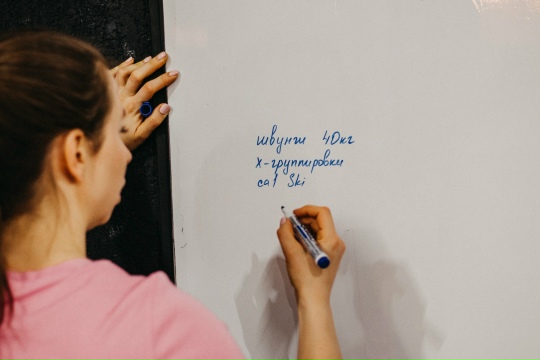 швунги 40кг
х-группировки
cal Ski